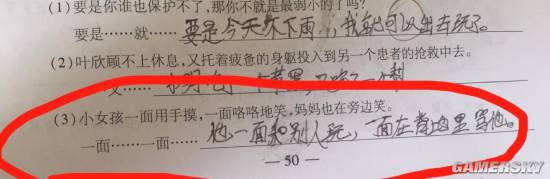 (1)要是你谁也保护不了,那你不就是最弱小的了吗?
要是……就…… 要是今天不下雨,我就可以出去玩了。
(2)叶欣顾不上休息,又托着疲急的身躯投入到另一个患者的抢救中去。
又……
(3)小女孩一面用手摸,一面咯咯地笑,妈妈也在旁边笑。
一面……一面…… 他一面和别人玩,一面在背地里骂他。
— 50 —
GAMERSKY